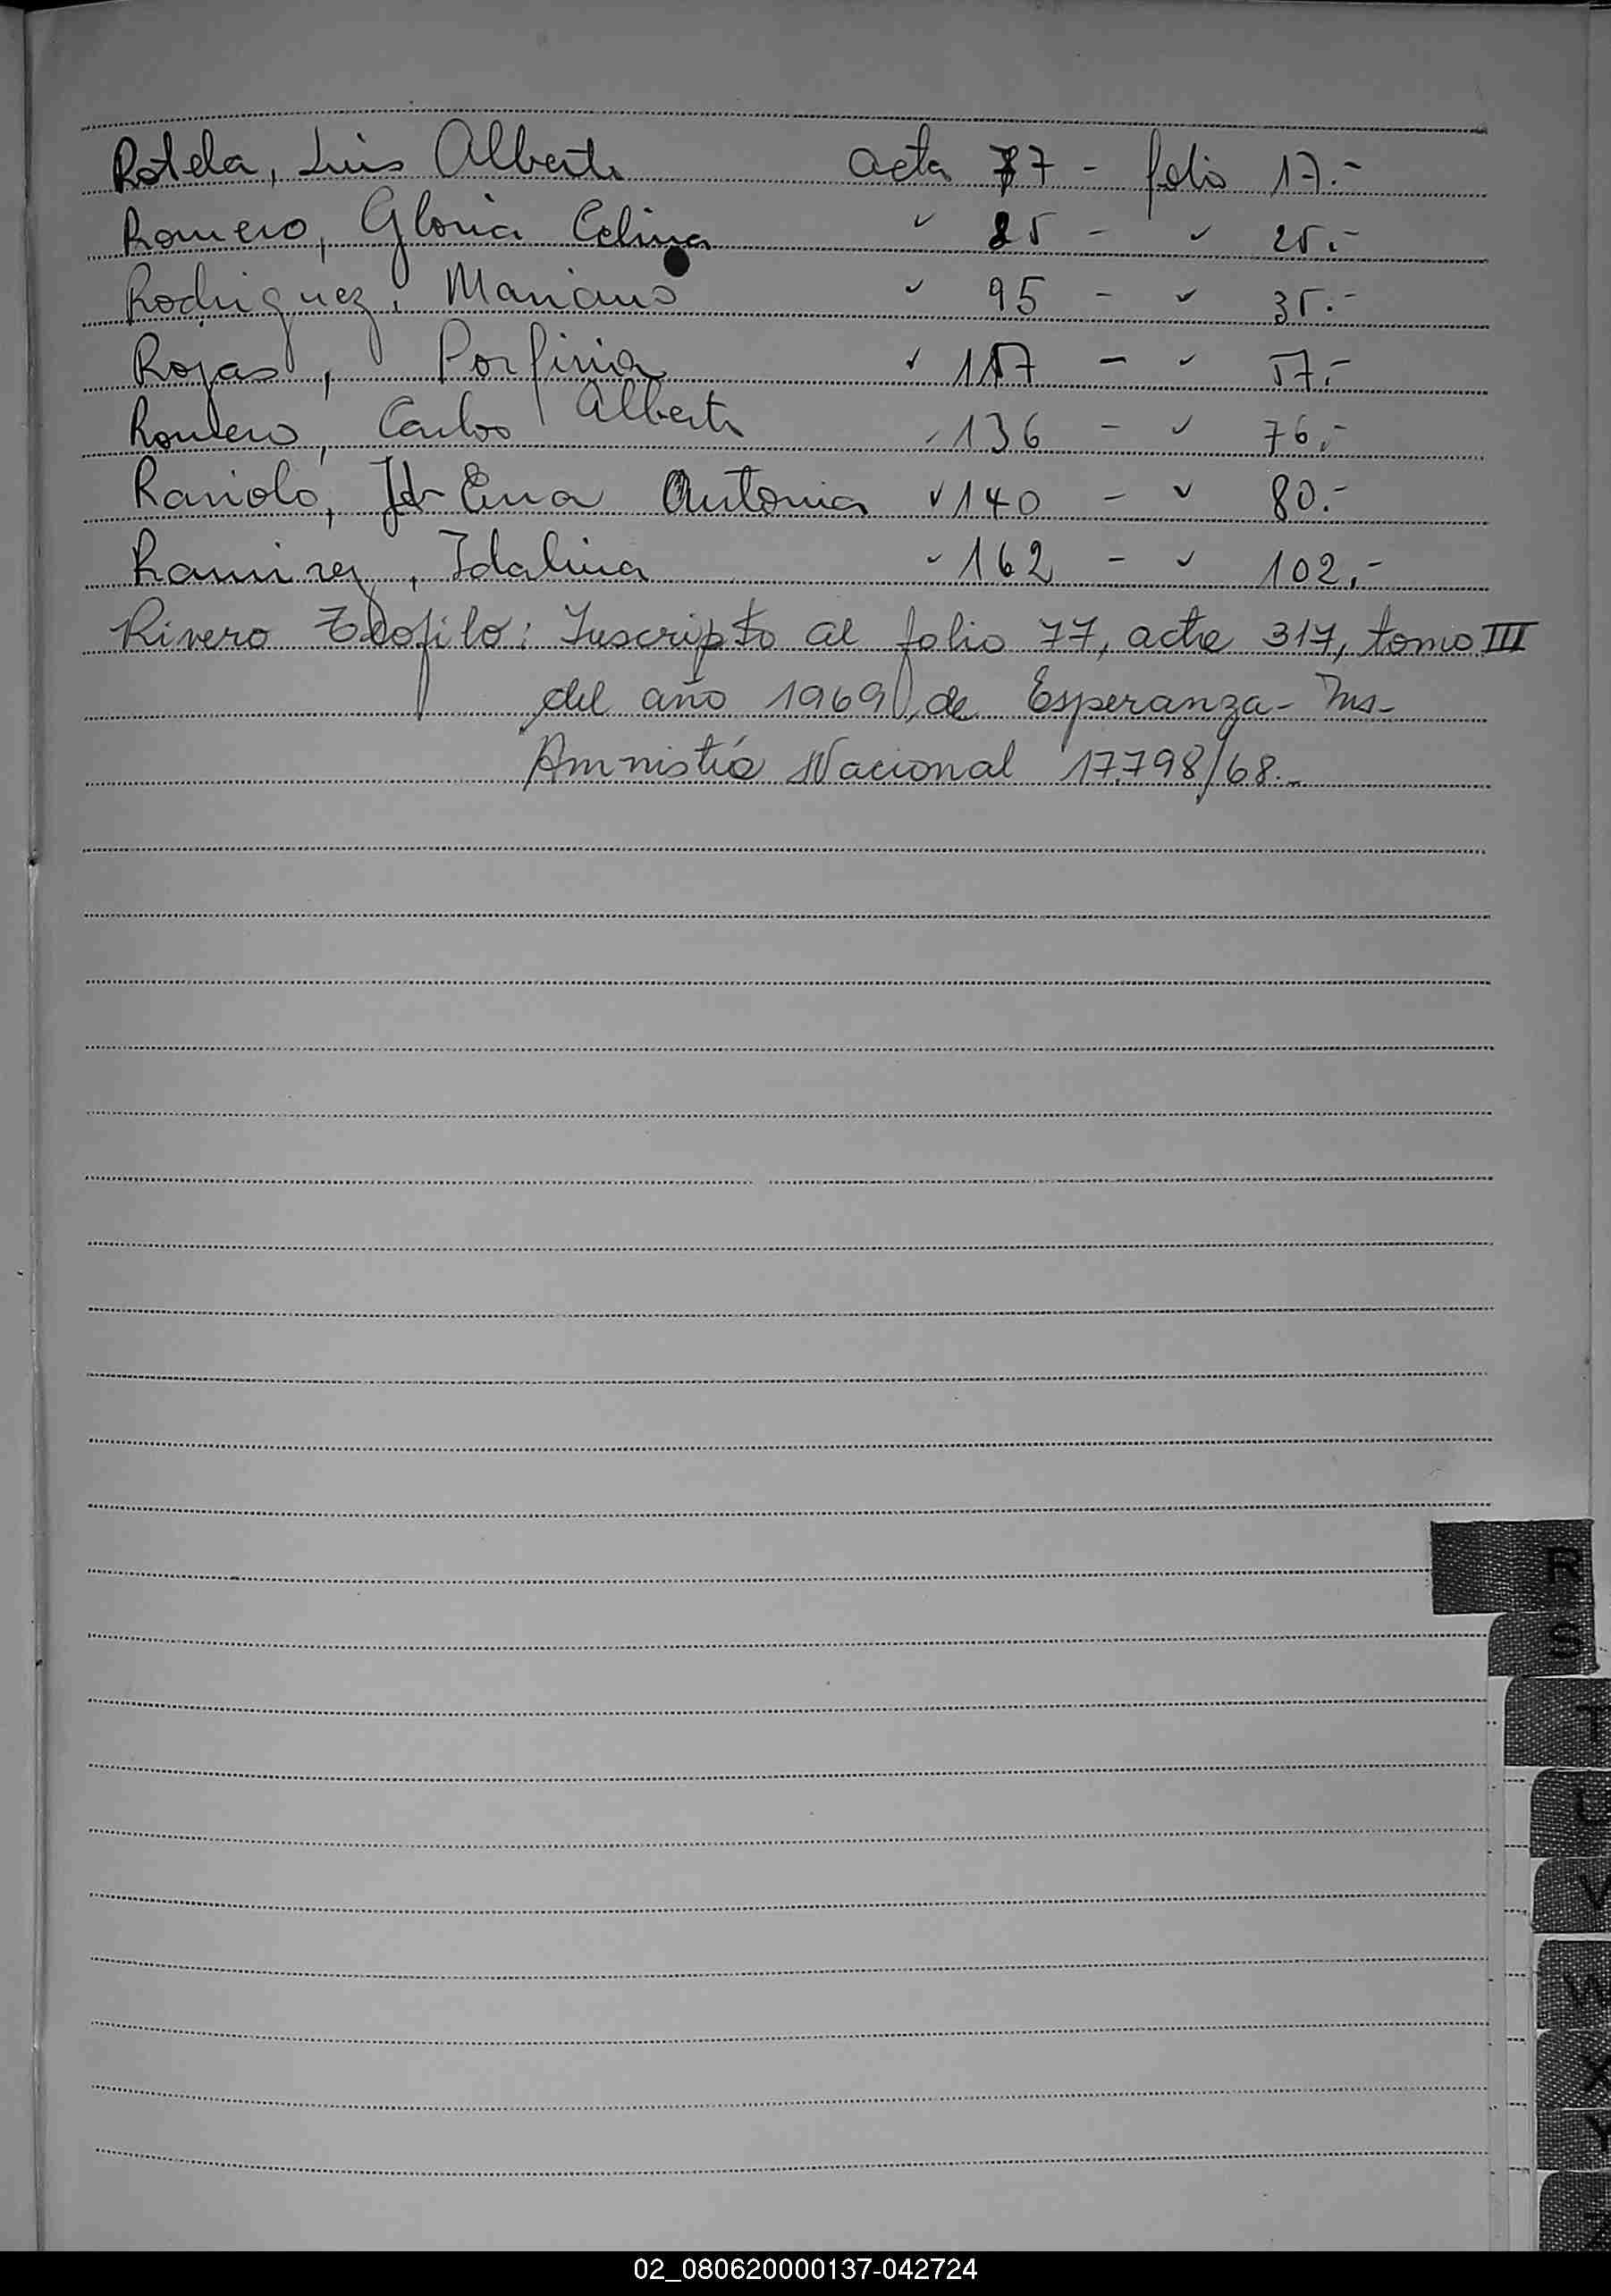 Rotela, Luis Alberto acta 77 - folio 17.-
Romero, Gloria Celina " 85 - " 25.-
Rodriguez, Mariano " 95 - " 35.-
Rojas, Porfiria " 117 - " 57.-
Romero, Carlos Alberto " 136 - " 76.-
Raviolo, Ema Antonia " 140 - " 80.-
Ramirez, Idalina " 162 - " 102.-
Rivero Teofilo: Inscripto al folio 77, acta 317, tomo III
del año 1969, de Esperanza - Ms-
Amnistía Nacional 17.798/68.-
R
S
T
U
V
W
X
Y
Z
02_080620000137-042724